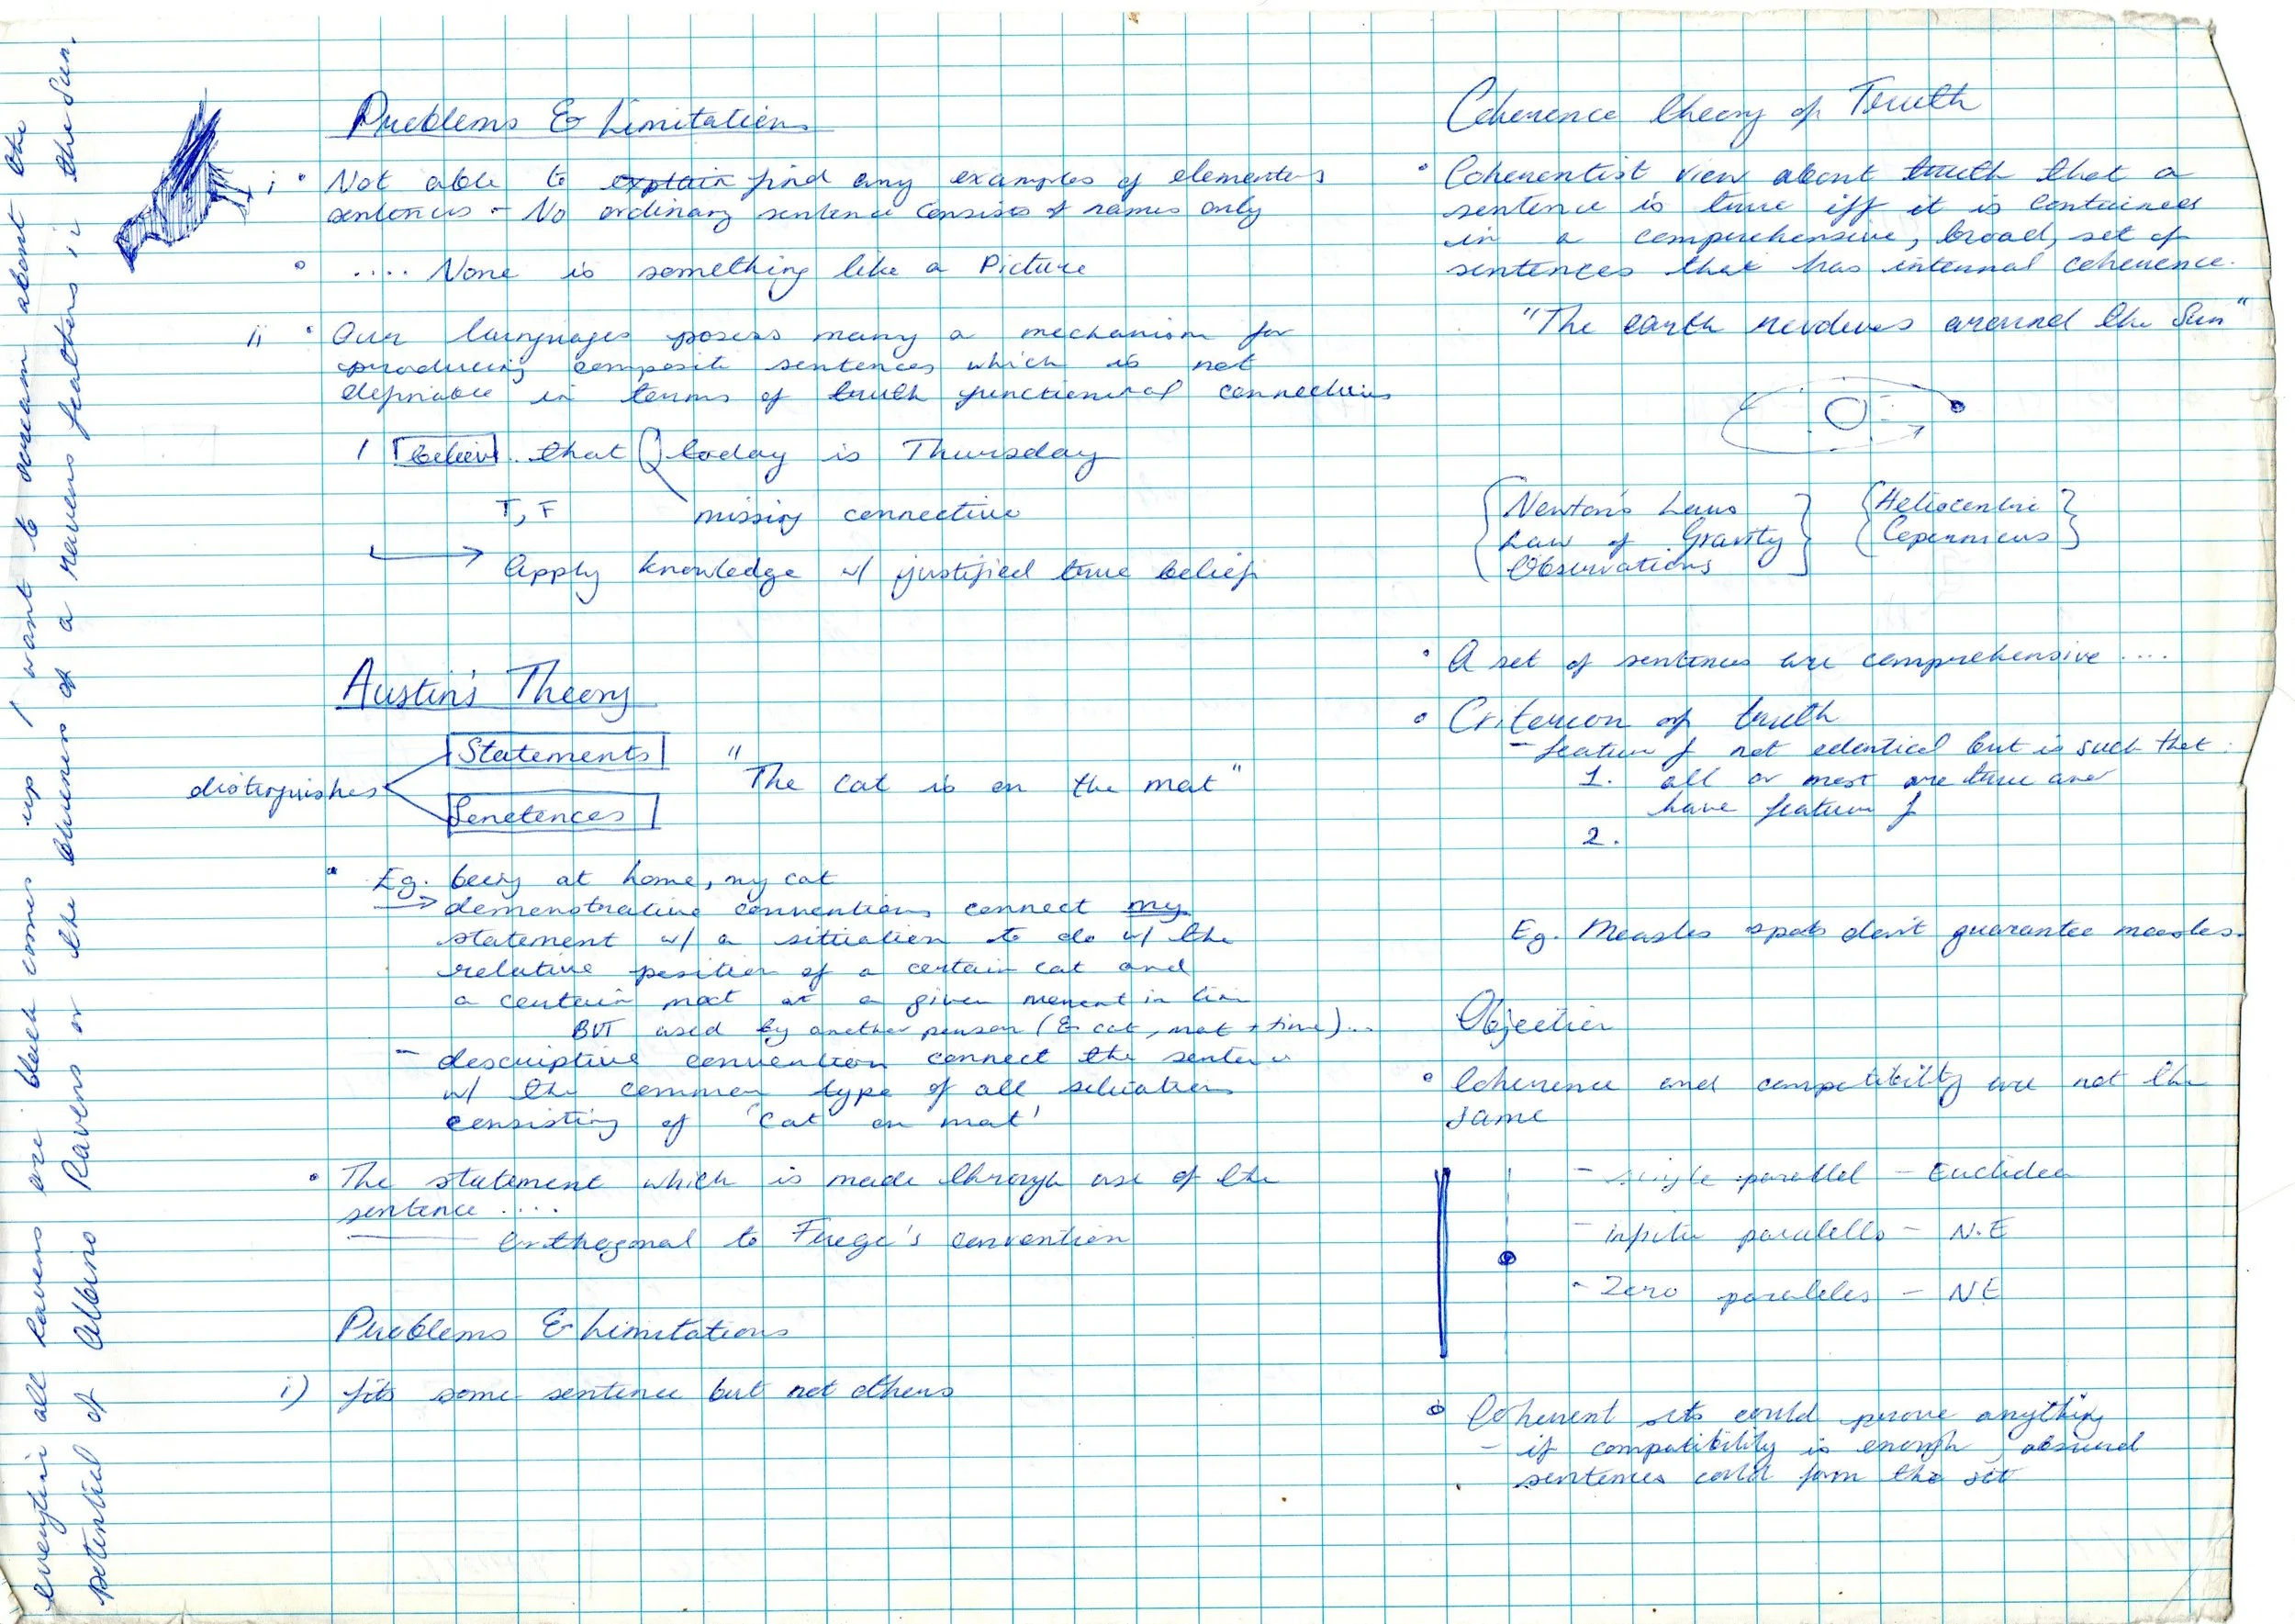 Everytim all ravens are black comes up I want to scream about the
potential of Albino Ravens or the blueness of a ravens feathers in the Sun.
Problems & Limitations
i • Not able to explain find any examples of elementary
sentences - No ordinary sentence consists of names only
• .... None is something like a Picture
ii • Our languages posess many a mechanism for
producing composite sentences which is not
definable in terms of truth functional connectives
I believe that today is Thursday
T, F missing connective
Apply knowledge w/ justified true belief
Austin's Theory
distinguishes
Statements
Senetences
"The cat is on the mat"
• Eg. being at home, my cat
→ demonstrative conventions connect my
statement w/ a situation to do w/ the
relative position of a certain cat and
a certain mat at a given moment in tim
BUT used by another person (& cat, mat + time)...
- descriptive convention connect the sentence
w/ the common type of all situation
consisting of 'cat on mat'
• The statement which is made through use of the
sentence ....
orthogonal to Frege's convention
Problems & Limitations
i) fits some sentence but not others
Coherence theory of Truth
• Coherentist view about truth that a
sentence is true iff it is contained
in a comprehensive, broad, set of
sentences that has internal coherence.
"The earth revolves around the Sun"
{Newton's Laws
Law of Gravity
Observations}
{Heliocentric
Copernicus}
• A set of sentences are comprehensive ....
• Criterion of truth
- feature f not identical but is such that:
1. all or most are true and
have feature f
2.
Eg. Measles spots don't guarantee measles.
Objection
• Coherence and compatibility are not the
same
- single parallel - Euclidean
- infinite paralells - N.E
- Zero paralleles - NE
• Coherent sets could prove anything
- if compatibility is enough, absurd
sentences could form the set